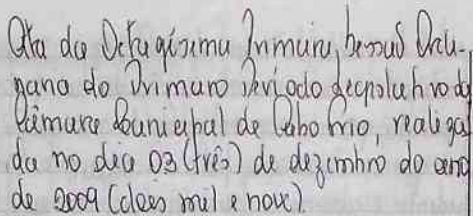 Ata da Octogésima Primeira Sessão Ordi-
nária do Primeiro Período Legislativo da
Câmara Municipal de Cabo Frio, realiza
da no dia 03 (três) de dezembro do ano
de 2009 (dois mil e nove).